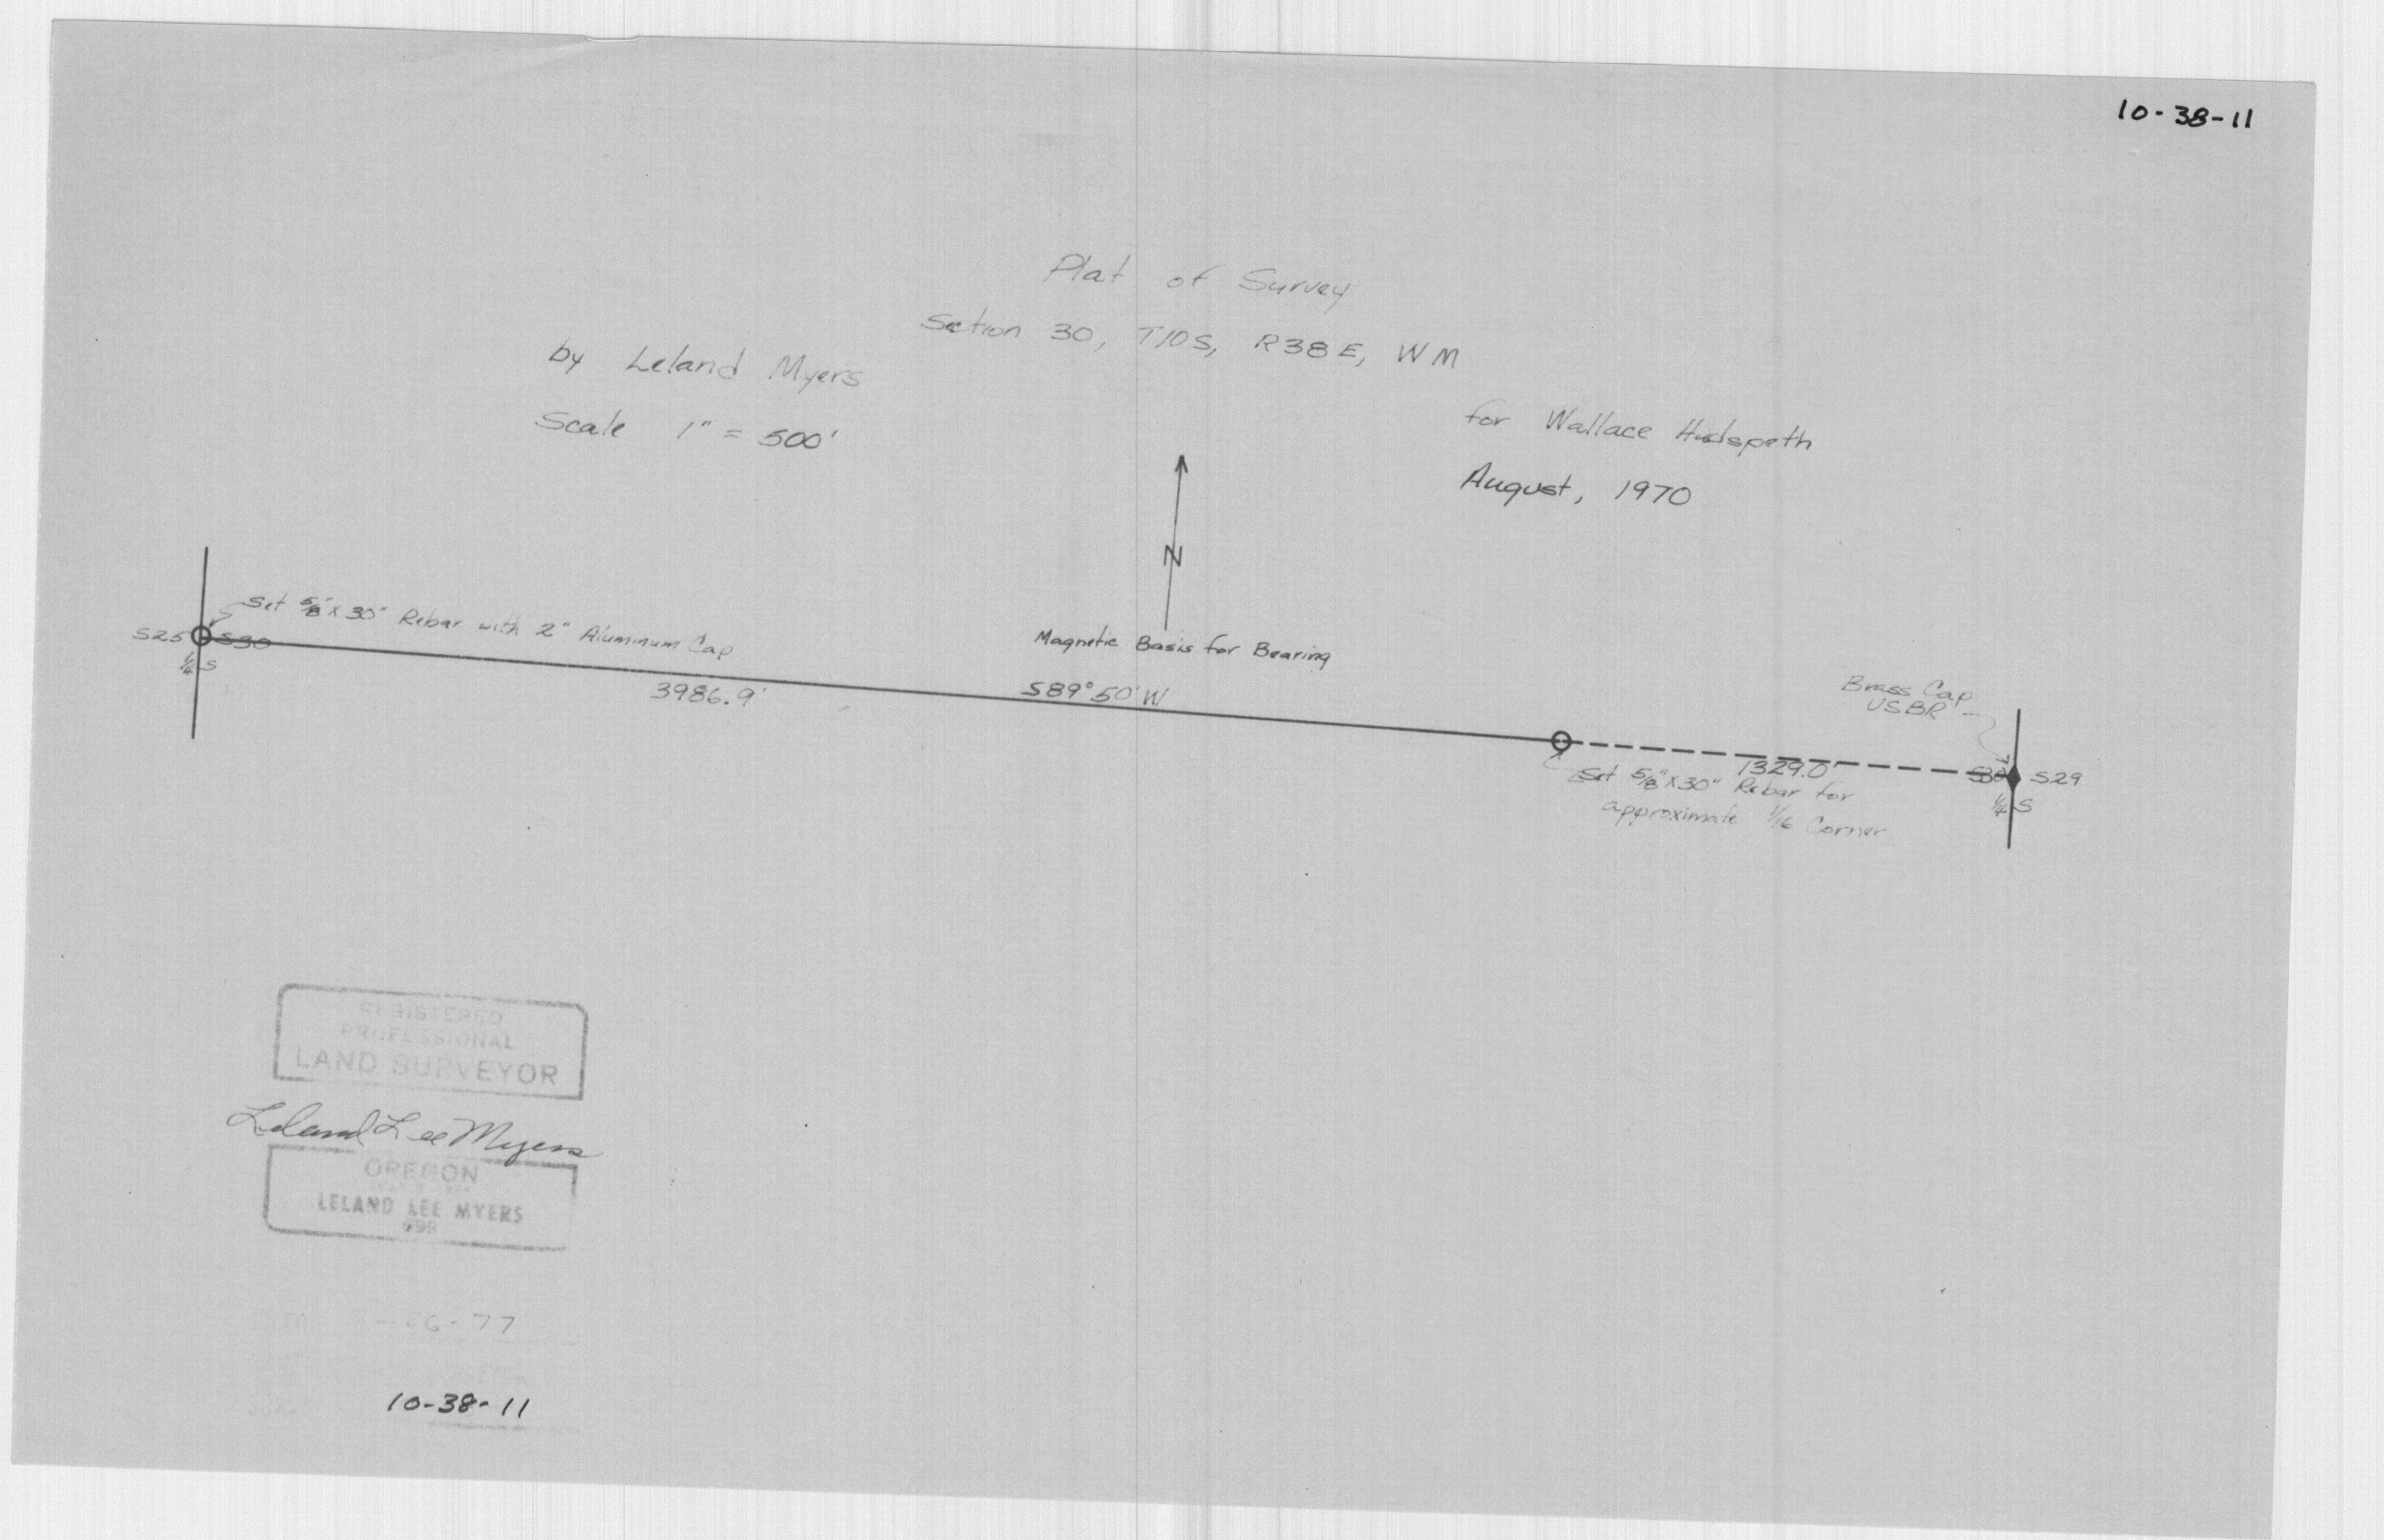 10-38-11
Plat of Survey
Section 30, T10S, R38E, WM
by Leland Myers
Scale 1" = 500'
for Wallace Hudspeth
August, 1970
N
Set 5/8" x 30" Rebar with 2" Aluminum Cap
S25 S30
1/4 S
Magnetic Basis for Bearing
3986.9'
S89°50'W
Brass Cap
USBR
1329.0'
S30 S29
1/4 S
Set 5/8" x 30" Rebar for
approximate 1/16 Corner
REGISTERED
PROFESSIONAL
LAND SURVEYOR
Leland Lee Myers
OREGON
LELAND LEE MYERS
-26-77
10-38-11